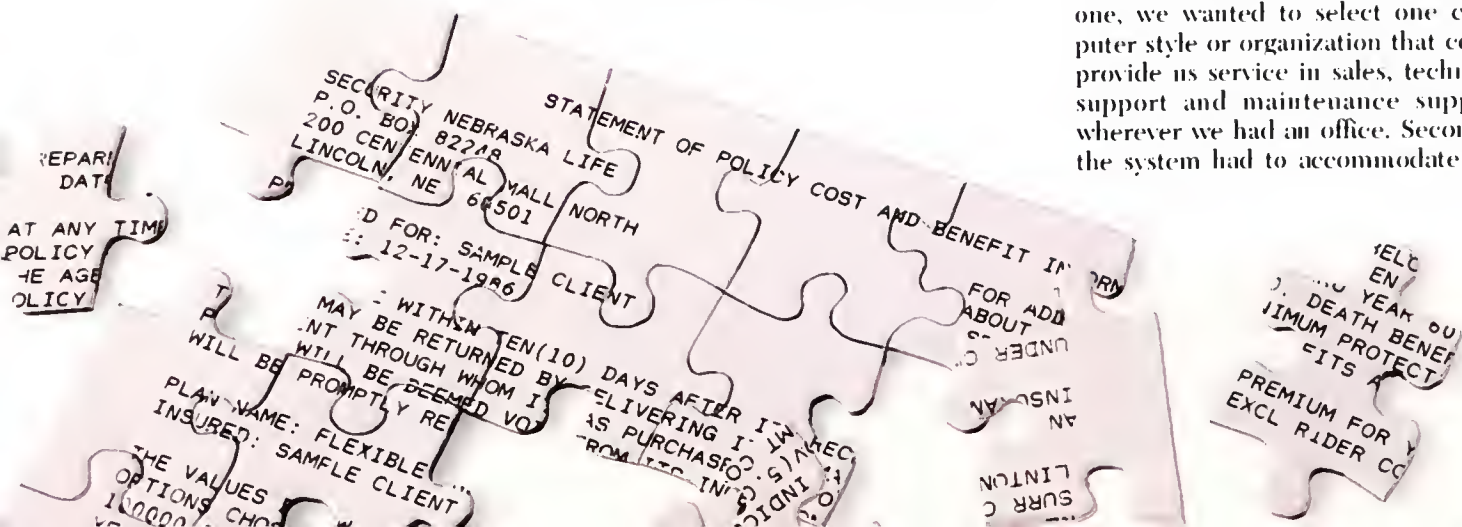 one, we wanted to select one c
puter style or organization that c
provide us service in sales, techn
support and maintenance supp
wherever we had an office. Secon
the system had to accommodate
STATEMENT OF POLICY COST AND BENEFIT IN
SECURITY NEBRASKA LIFE
P.O. BOX 82248
200 CENTENNIAL MALL NORTH
LINCOLN, NE 68501
D FOR: SAMPLE CLIENT
: 12-17-1986
WITHIN TEN(10) DAYS AFTER
MAY BE RETURNED BY ELIVERING
NT THROUGH WHOM I AS PURCHASED
WILL BE DEEMED VO
WILL BE PROMPTLY RE
PLAN NAME: FLEXIBLE
INSURED: SAMPLE CLIENT
THE VALUES
OPTIONS CHO
100000
REPAR
DAT
AT ANY TIM
POLICY
HE AGE
OLICY
FOR ADD
ABOUT
UNDER
INSURAN
AN
LINTON
SURR C
EN
YEAR OU
DEATH BENEF
IMUM PROTECT
FITS A
PREMIUM FOR Y
EXCL RIDER CO